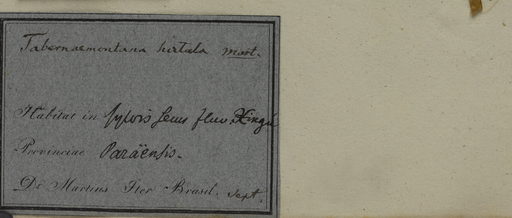 Tabernaemontana hirtula Mart.
Habitat in sylvis secus fluv. Xingú
Provinciae Paraënsis.
Dr. Martius Iter Brasil. Sept.